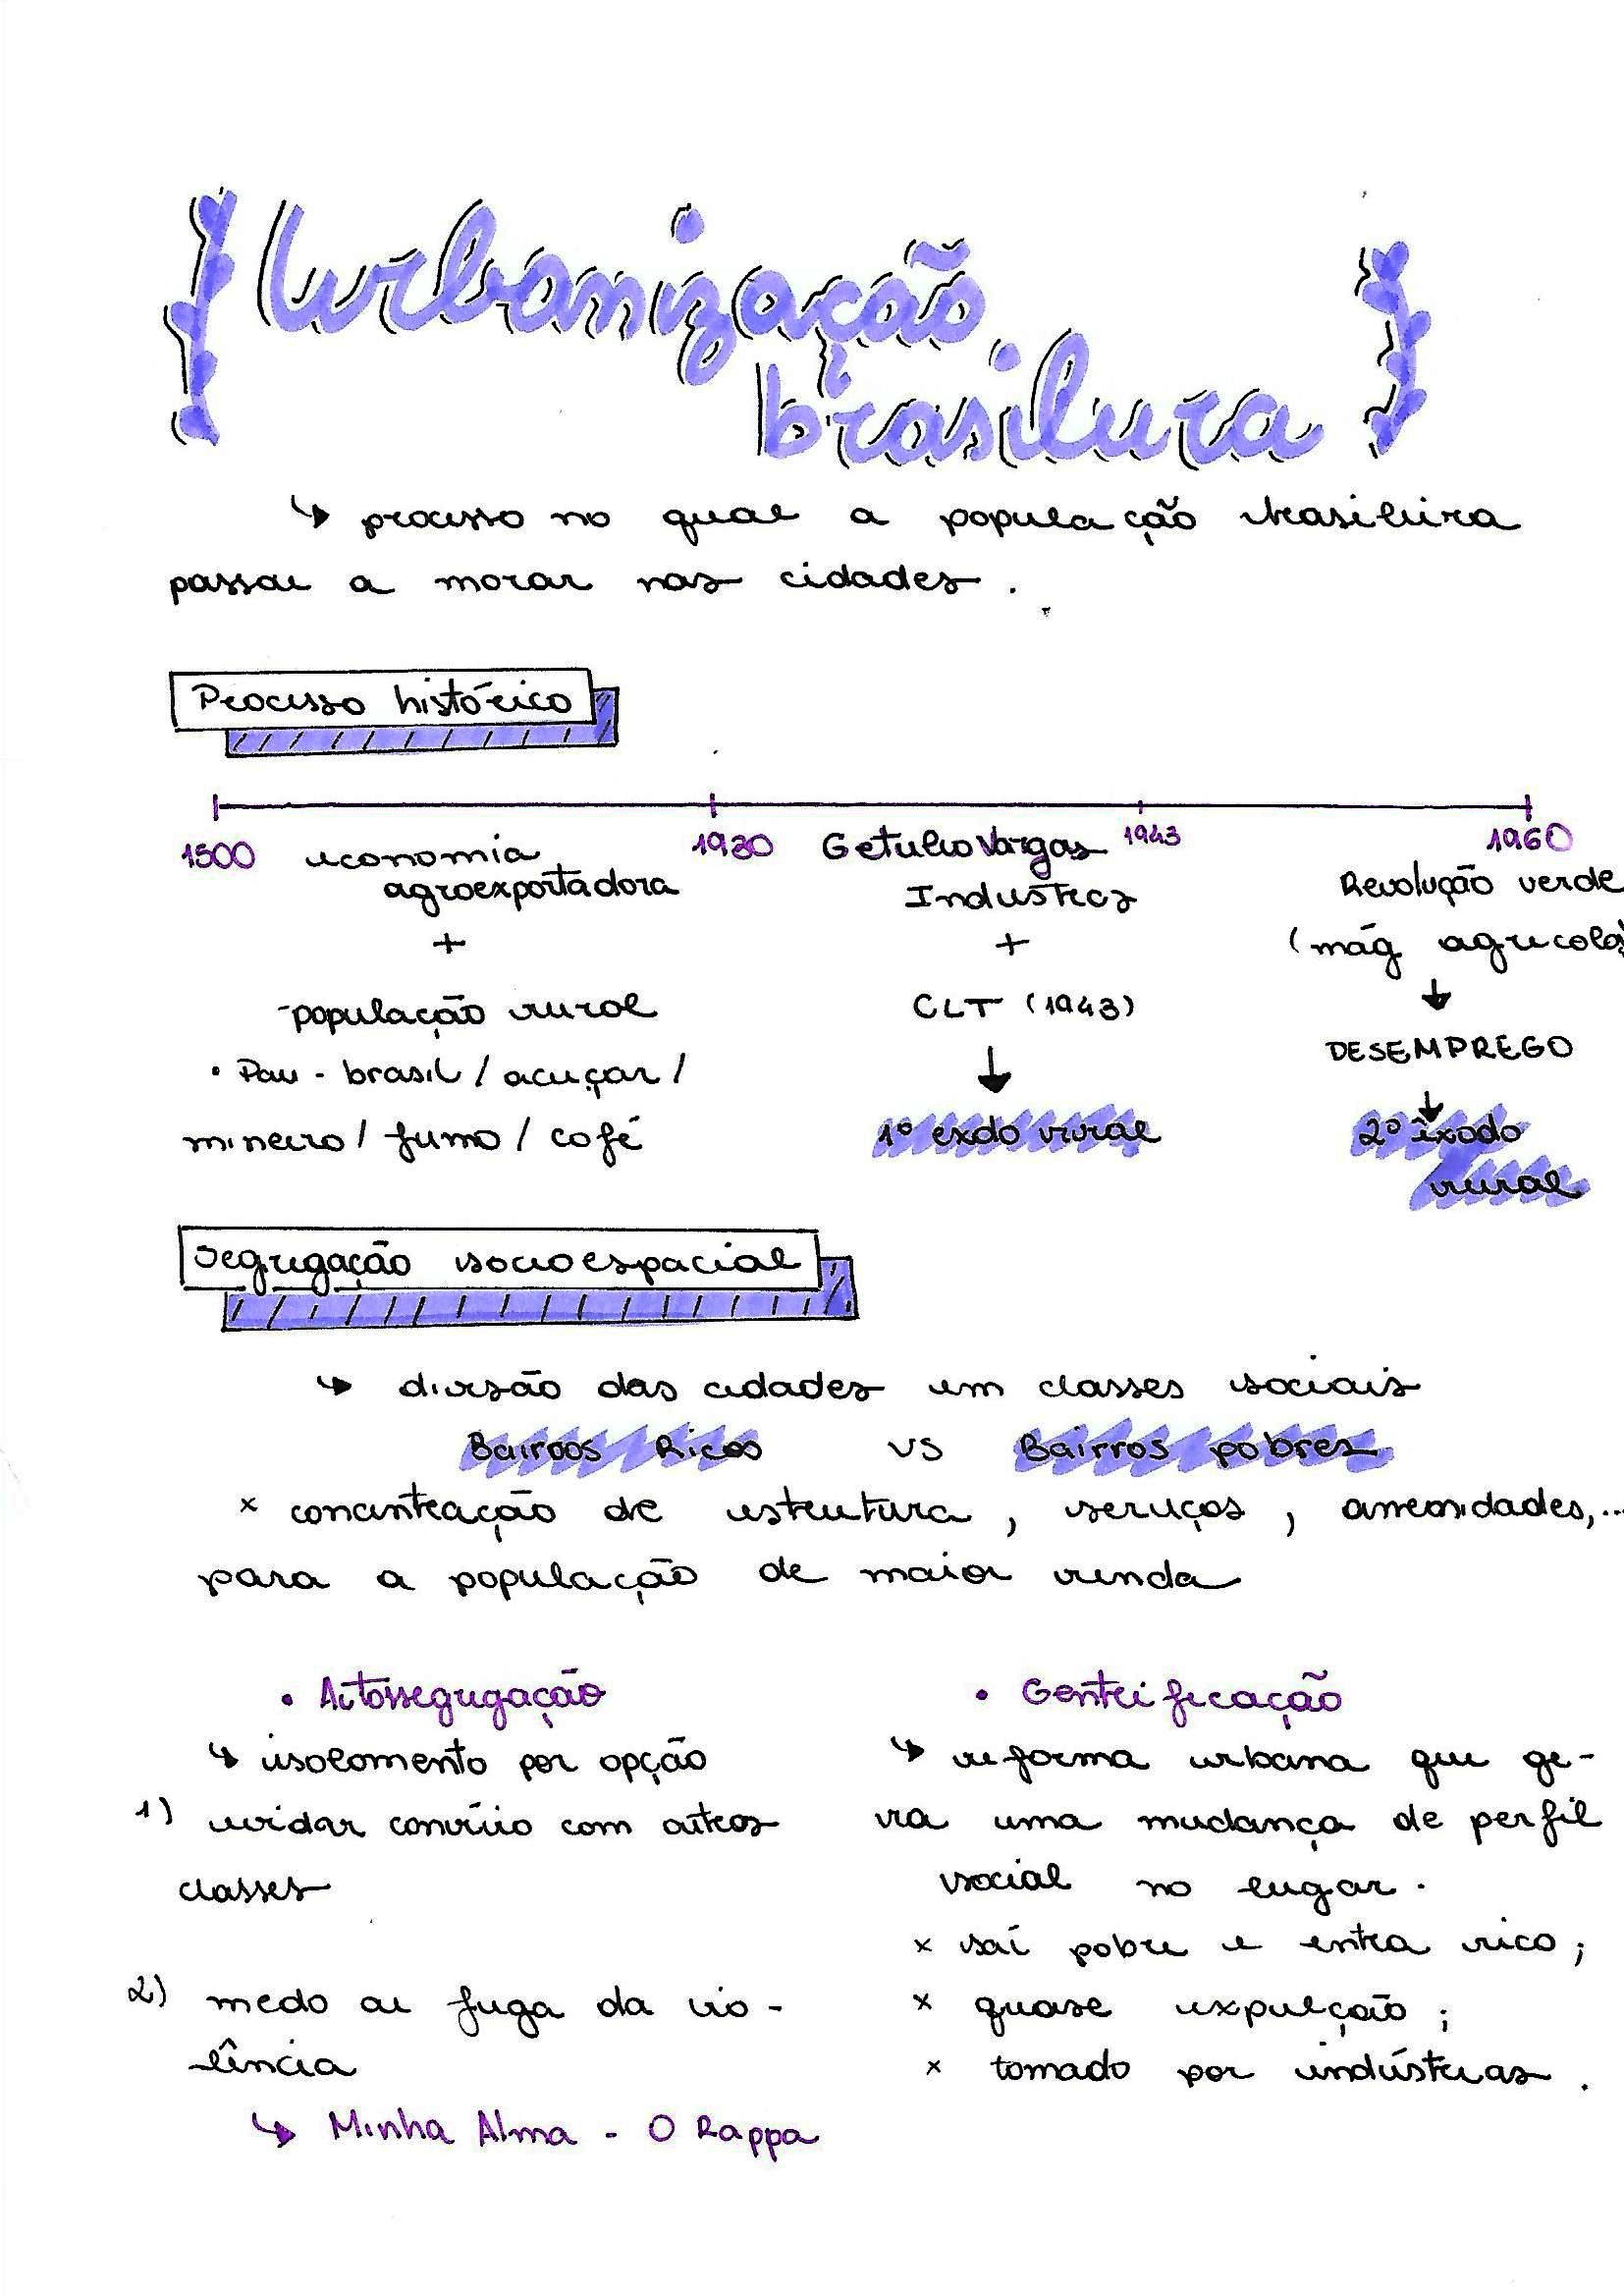 Urbanização
brasileira
↳ processo no qual a população brasileira
passou a morar nas cidades.
Processo histórico
1500 economia
agroexportadora
+
-população rural
• Pau-brasil / acuçar /
mineiro / fumo / café
1930 Getulio Vargas 1943
Industrias
+
CLT (1943)
↓
1º exdo rural
1960
Revolução verde
(mág agricolas)
↓
DESEMPREGO
↓
2º êxodo
rural
Segregação socioespacial
↳ divisão das cidades em classes sociais
Bairros Ricos vs Bairros pobres
x concentração de estrutura, serviços, amenidades,...
para a população de maior renda
• Autossegregação
↳ isolamento por opção
1) evidar convívio com outras
classes
2) medo ou fuga da vio-
lência
↳ Minha Alma - O Rappa
• Gentrificação
↳ reforma urbana que ge-
ra uma mudança de perfil
social no lugar.
x saí pobre e entra rico;
x quase expulção;
x tomado por indústrias.